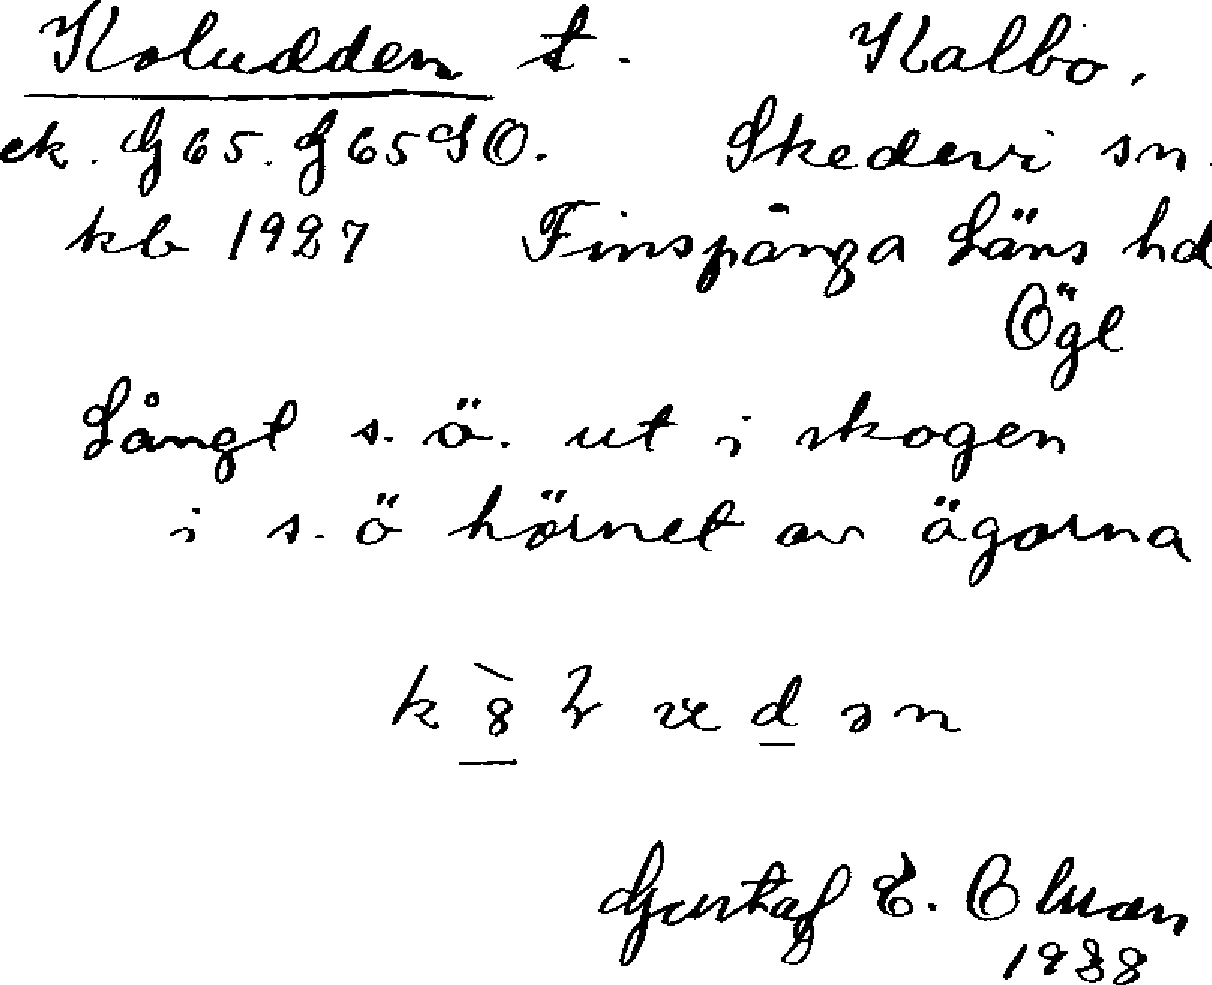 Koludden t. Kalbo,
ek. G65. G65SO. Skedevi sn.
kb 1927 Finspånga Läns hd
Ögl
Långt s.ö. ut i skogen
i s.ö hörnet av ägorna
Gustaf E. Olson
1938